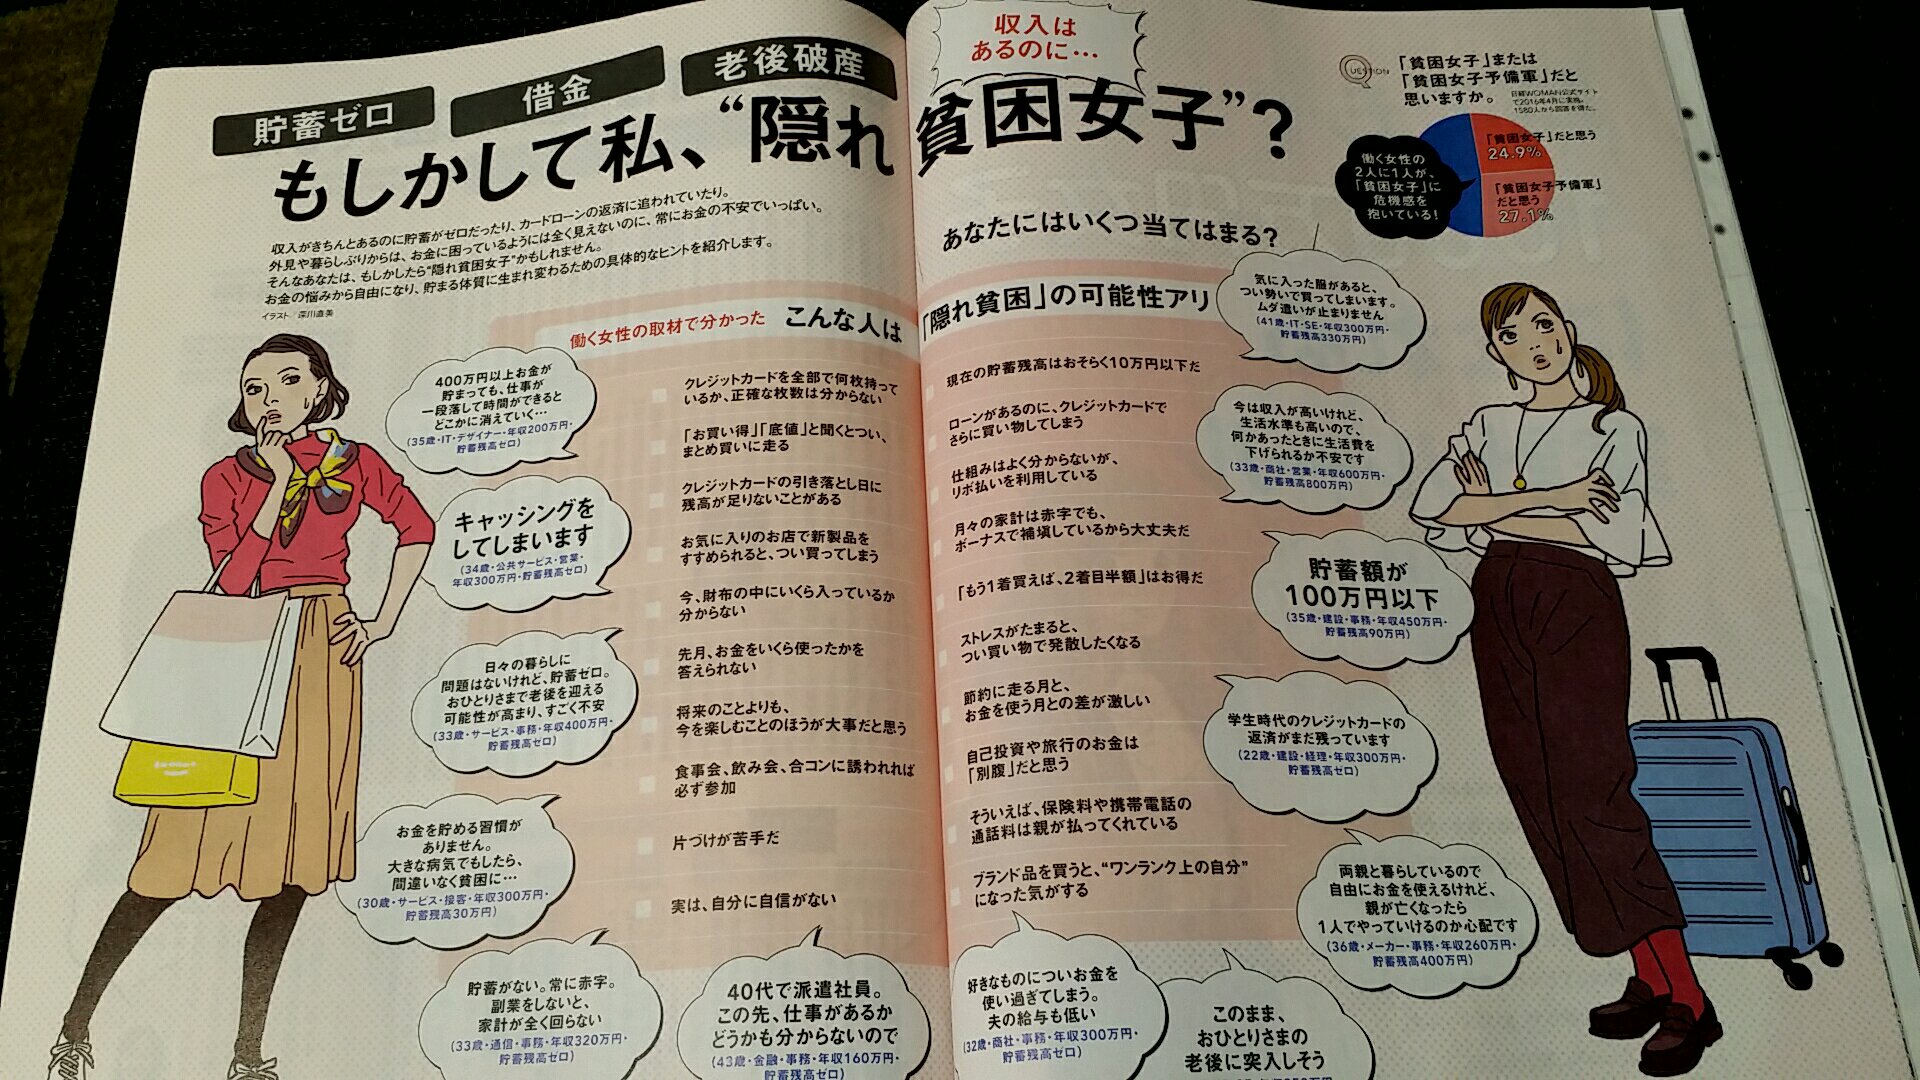 貯蓄ゼロ
借金
老後破産
収入は
あるのに…
もしかして私、“隠れ貧困女子”?
収入がきちんとあるのに貯蓄がゼロだったり、カードローンの返済に追われていたり。
外見や暮らしぶりからは、お金に困っているようには全く見えないのに、常にお金の不安でいっぱい。
そんなあなたは、もしかしたら“隠れ貧困女子”かもしれません。
お金の悩みから自由になり、貯まる体質に生まれ変わるための具体的なヒントを紹介します。
イラスト/深川直美
QUESTION
「貧困女子」または
「貧困女子予備軍」だと
思いますか。
日経WOMAN公式サイト
で2016年4月に実施。
1580人から回答を得た。
「貧困女子」だと思う
24.9%
「貧困女子予備軍」
だと思う
27.1%
働く女性の
2人に1人が、
「貧困女子」に
危機感を
抱いている!
あなたにはいくつ当てはまる?
働く女性の取材で分かった こんな人は「隠れ貧困」の可能性アリ
クレジットカードを全部で何枚持って
いるか、正確な枚数は分からない
「お買い得」「底値」と聞くとつい、
まとめ買いに走る
クレジットカードの引き落とし日に
残高が足りないことがある
お気に入りのお店で新製品を
すすめられると、つい買ってしまう
今、財布の中にいくら入っているか
分からない
先月、お金をいくら使ったかを
答えられない
将来のことよりも、
今を楽しむことのほうが大事だと思う
食事会、飲み会、合コンに誘われれば
必ず参加
片づけが苦手だ
実は、自分に自信がない
現在の貯蓄残高はおそらく10万円以下だ
ローンがあるのに、クレジットカードで
さらに買い物してしまう
仕組みはよく分からないが、
リボ払いを利用している
月々の家計は赤字でも、
ボーナスで補填しているから大丈夫だ
「もう1着買えば、2着目半額」はお得だ
ストレスがたまると、
つい買い物で発散したくなる
節約に走る月と、
お金を使う月との差が激しい
自己投資や旅行のお金は
「別腹」だと思う
そういえば、保険料や携帯電話の
通話料は親が払ってくれている
ブランド品を買うと、“ワンランク上の自分”
になった気がする
400万円以上お金が
貯まっても、仕事が
一段落して時間ができると
どこかに消えていく…
(35歳・IT・デザイナー・年収200万円・
貯蓄残高ゼロ)
キャッシングを
してしまいます
(34歳・公共サービス・営業・
年収300万円・貯蓄残高ゼロ)
日々の暮らしに
問題はないけれど、貯蓄ゼロ。
おひとりさまで老後を迎える
可能性が高まり、すごく不安
(33歳・サービス・事務・年収400万円・
貯蓄残高ゼロ)
お金を貯める習慣が
ありません。
大きな病気でもしたら、
間違いなく貧困に…
(30歳・サービス・接客・年収300万円・
貯蓄残高30万円)
貯蓄がない。常に赤字。
副業をしないと、
家計が全く回らない
(33歳・通信・事務・年収320万円・
貯蓄残高ゼロ)
40代で派遣社員。
この先、仕事があるか
どうかも分からないので
(43歳・金融・事務・年収160万円・
貯蓄残高ゼロ)
気に入った服があると、
つい勢いで買ってしまいます。
ムダ遣いが止まりません
(41歳・IT・SE・年収300万円・
貯蓄残高330万円)
今は収入が高いけれど、
生活水準も高いので、
何かあったときに生活費を
下げられるか不安です
(33歳・商社・営業・年収600万円・
貯蓄残高800万円)
貯蓄額が
100万円以下
(35歳・建設・事務・年収450万円・
貯蓄残高90万円)
学生時代のクレジットカードの
返済がまだ残っています
(22歳・建設・経理・年収300万円・
貯蓄残高ゼロ)
両親と暮らしているので
自由にお金を使えるけれど、
親が亡くなったら
1人でやっていけるのか心配です
(36歳・メーカー・事務・年収260万円・
貯蓄残高400万円)
好きなものについお金を
使い過ぎてしまう。
夫の給与も低い
(32歳・商社・事務・年収300万円・
貯蓄残高ゼロ)
このまま、
おひとりさまの
老後に突入しそう